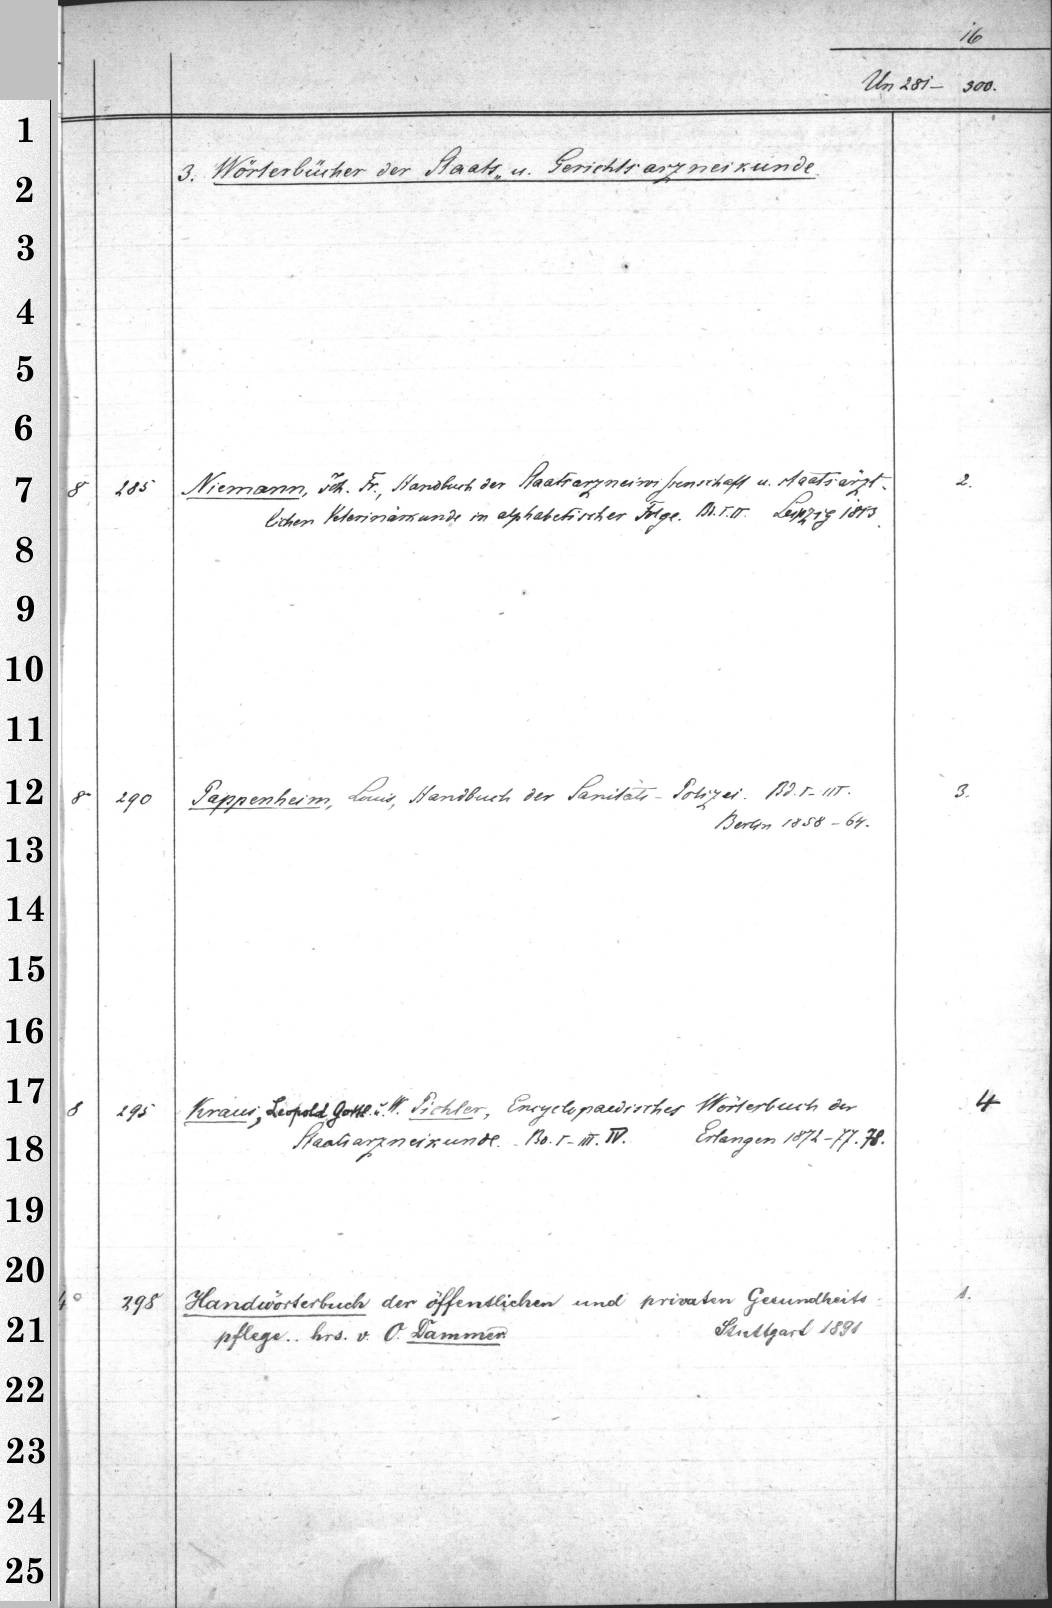 16
Un 281 - 300.
1
3. Wörterbücher der Staats- u. Gerichtsarzneikunde.
2
3
4
5
6
7 8 285 Niemann, Joh. Fr., Handbuch der Staatsarzneiwissenschaft u. staatsärzt- 2.
lichen Veterinärkunde in alphabetischer Folge. Bd. I. II. Leipzig 1813.
8
9
10
11
12 8 290 Pappenheim, Louis, Handbuch der Sanitäts-Polizei. Bd. I-III. 3.
Berlin 1858-64.
13
14
15
16
17 8 295 Kraus, Leopold Gottl. u. W. Pichler, Encyclopaedisches Wörterbuch der 4
18 Staatsarzneikunde. Bd. I-III. IV. Erlangen 1872-77. 78.
19
20
4° 298 Handwörterbuch der öffentlichen und privaten Gesundheits- 1.
21 pflege.. hrs. v. O. Dammer. Stuttgart 1891
22
23
24
25